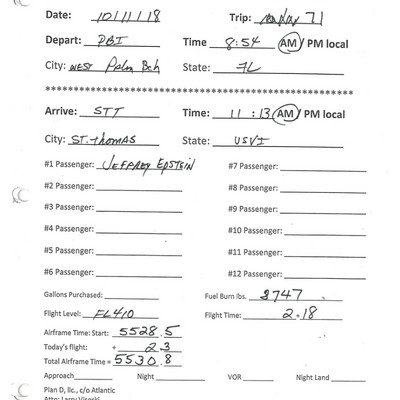 Date: 10/11/18 Trip: 71
Depart: PBI Time 8:54 AM / PM local
City: WEST Palm Bch State: FL
************************************************
Arrive: STT Time: 11:13 AM / PM local
City: ST. THOMAS State: USVI
#1 Passenger: JEFFREY EPSTEIN #7 Passenger:
#2 Passenger: #8 Passenger:
#3 Passenger: #9 Passenger:
#4 Passenger: #10 Passenger:
#5 Passenger: #11 Passenger:
#6 Passenger: #12 Passenger:
Gallons Purchased: Fuel Burn lbs. 8747
Flight Level: FL410 Flight Time: 2.18
Airframe Time: Start: 5528.5
Today's flight: + 2.3
Total Airframe Time = 5530.8
Approach Night VOR Night Land
Plan D, llc., c/o Atlantic
Attn: Larry Visoski